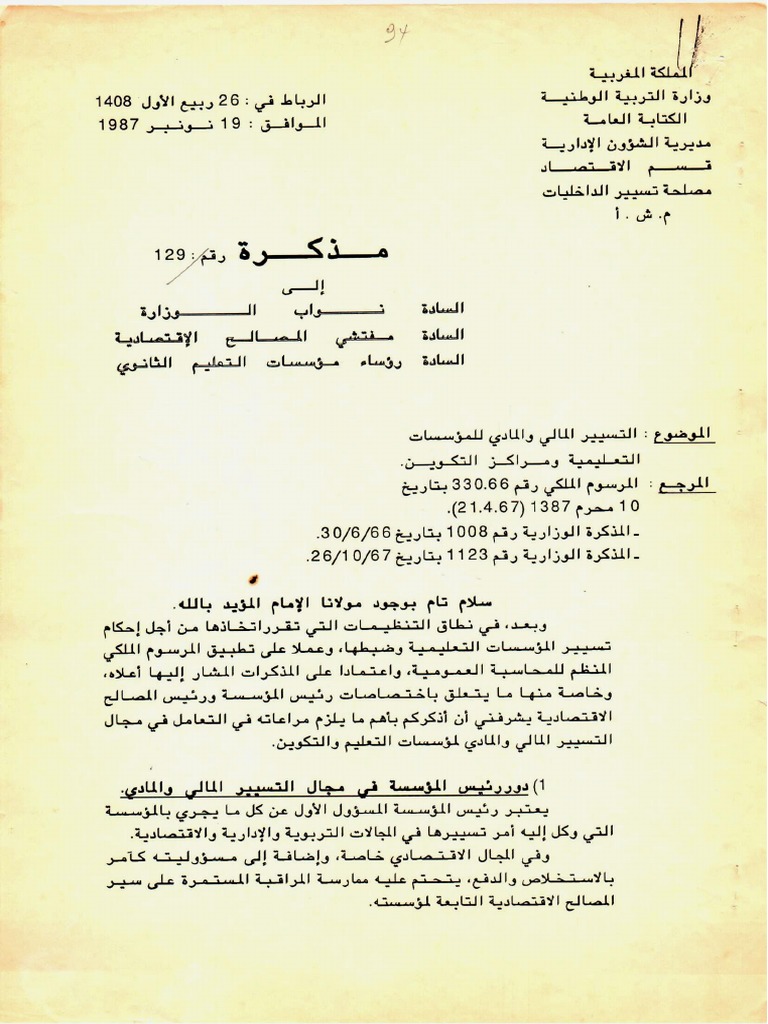 94
المملكة المغربية
وزارة التربية الوطنية
الكتابة العامة
مديرية الشؤون الإدارية
قسم الاقتصاد
مصلحة تسيير الداخليات
م. ش. أ
الرباط في: 26 ربيع الأول 1408
الموافق: 19 نونبر 1987
مذكرة رقم: 129
إلى
السادة نواب الوزارة
السادة مفتشي المصالح الإقتصادية
السادة رؤساء مؤسسات التعليم الثانوي
الموضوع: التسيير المالي والمادي للمؤسسات
التعليمية ومراكز التكوين.
المرجع: المرسوم الملكي رقم 330.66 بتاريخ
10 محرم 1387 (21.4.67).
ـ المذكرة الوزارية رقم 1008 بتاريخ 30/6/66.
ـ المذكرة الوزارية رقم 1123 بتاريخ 26/10/67.
سلام تام بوجود مولانا الإمام المؤيد بالله.
وبعد، في نطاق التنظيمات التي تقرر اتخاذها من أجل إحكام
تسيير المؤسسات التعليمية وضبطها، وعملا على تطبيق المرسوم الملكي
المنظم للمحاسبة العمومية، واعتمادا على المذكرات المشار إليها أعلاه،
وخاصة منها ما يتعلق باختصاصات رئيس المؤسسة ورئيس المصالح
الاقتصادية يشرفني أن أذكركم بأهم ما يلزم مراعاته في التعامل في مجال
التسيير المالي والمادي لمؤسسات التعليم والتكوين.
1) دور رئيس المؤسسة في مجال التسيير المالي والمادي.
يعتبر رئيس المؤسسة المسؤول الأول عن كل ما يجري بالمؤسسة
التي وكل إليه أمر تسييرها في المجالات التربوية والإدارية والاقتصادية.
وفي المجال الاقتصادي خاصة، وإضافة إلى مسؤوليته كآمر
بالاستخلاص والدفع، يتحتم عليه ممارسة المراقبة المستمرة على سير
المصالح الاقتصادية التابعة لمؤسسته.